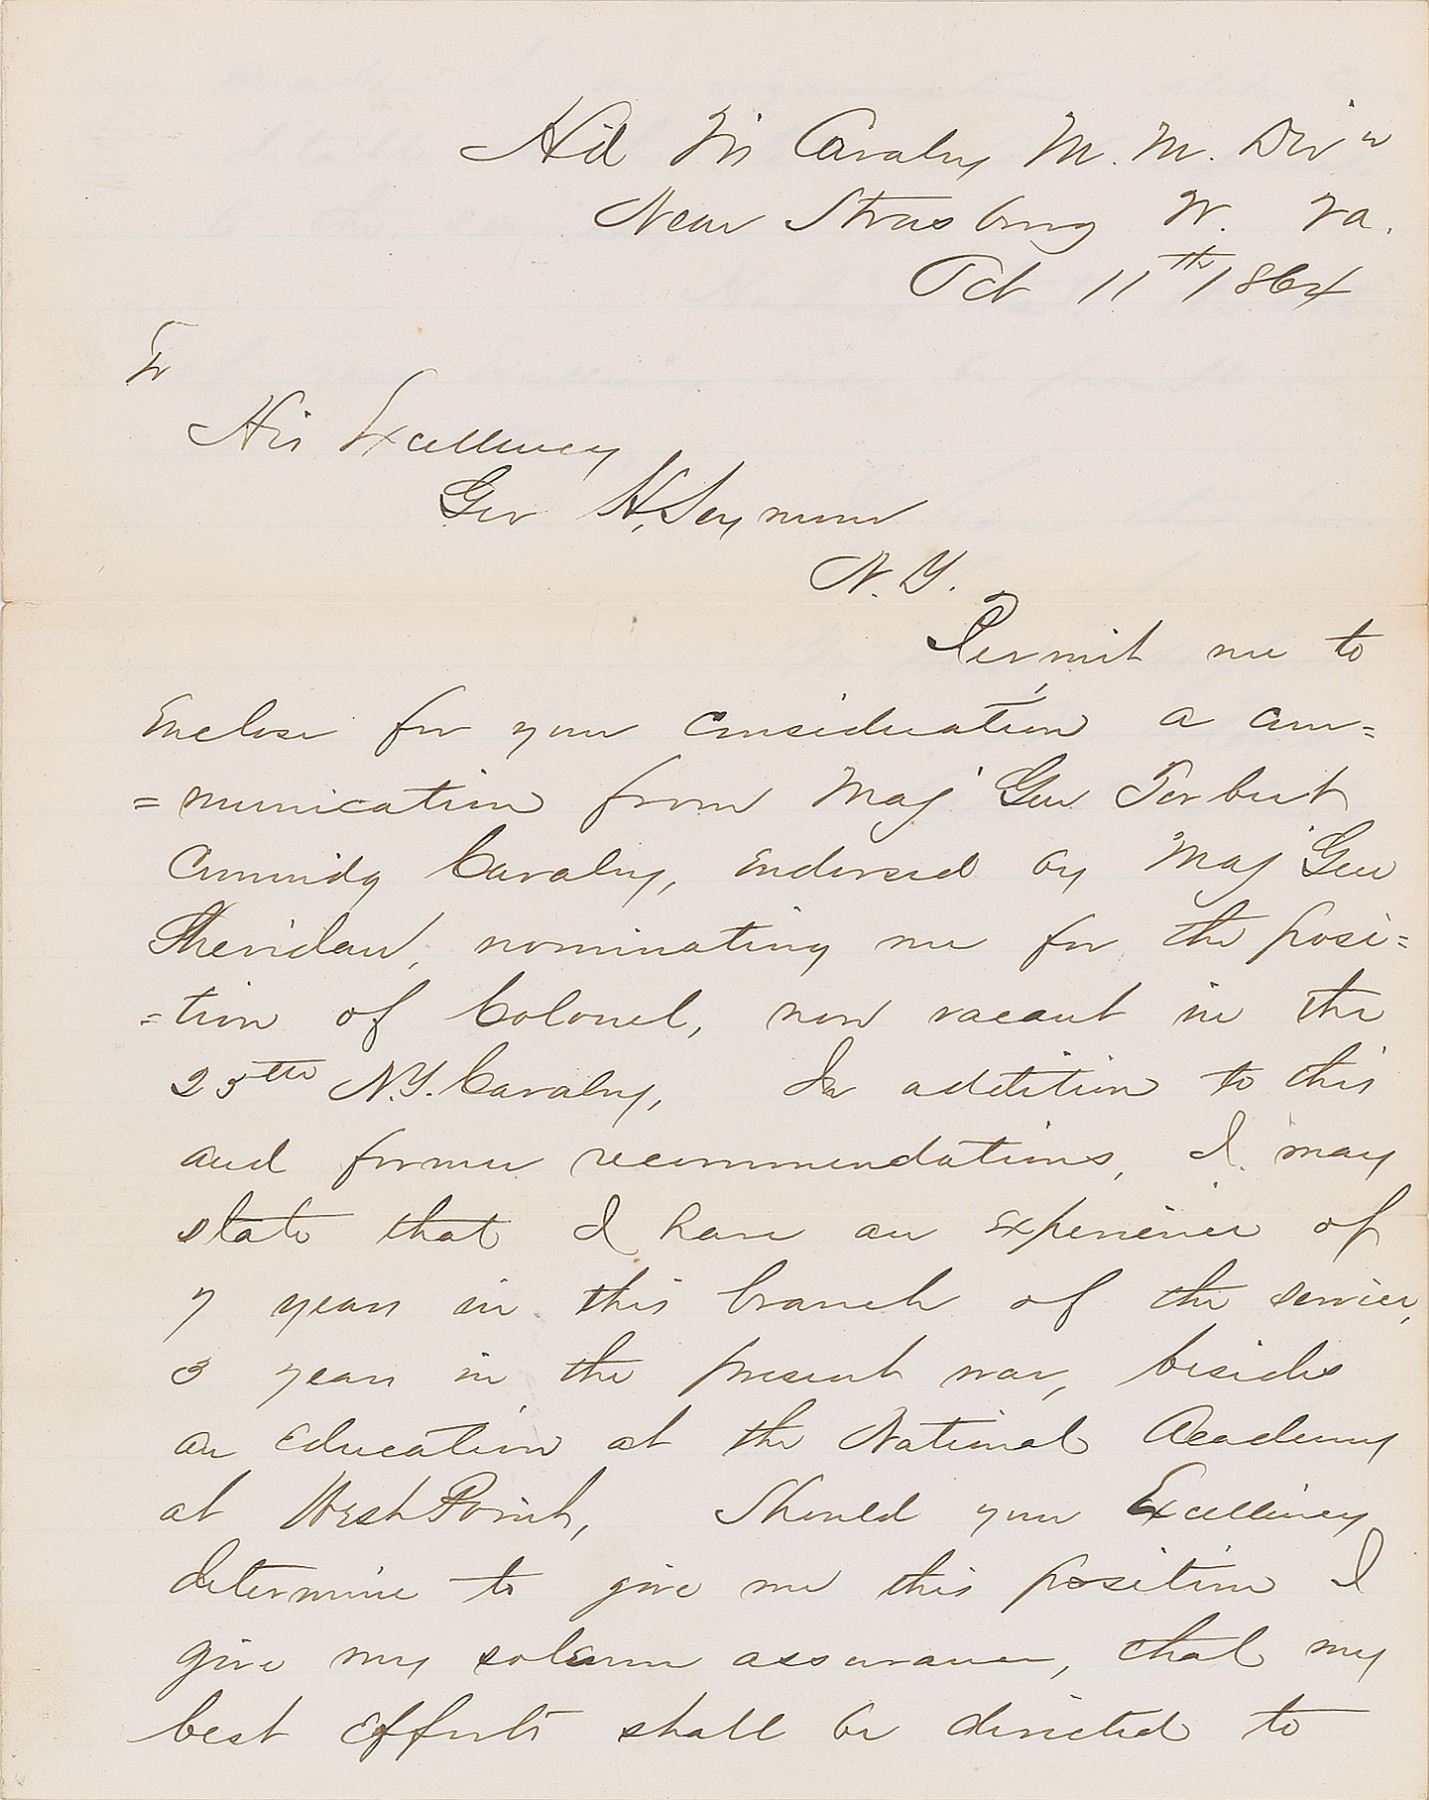 Hd Qrs Cavalry M. M. Divn
Near Strasburg W. Va.
Oct 11th 1864
To
His Excellency
Gov H. Seymour
N. Y.
Permit me to
Enclose for your consideration a com=
=munication from Maj Gen Torbert
Commndg Cavalry, Endorsed by Maj Gen
Sheridan, nominating me for the posi=
=tion of Colonel, now vacant in the
25th N.Y. Cavalry, In addition to this
and former recommendations, I may
state that I have an experience of
7 years in this branch of the service,
3 years in the present war, besides
an Education at the National Academy
at West Point, Should your Excellency
determine to give me this position I
give my solemn assurance, that my
best Efforts shall be directed to